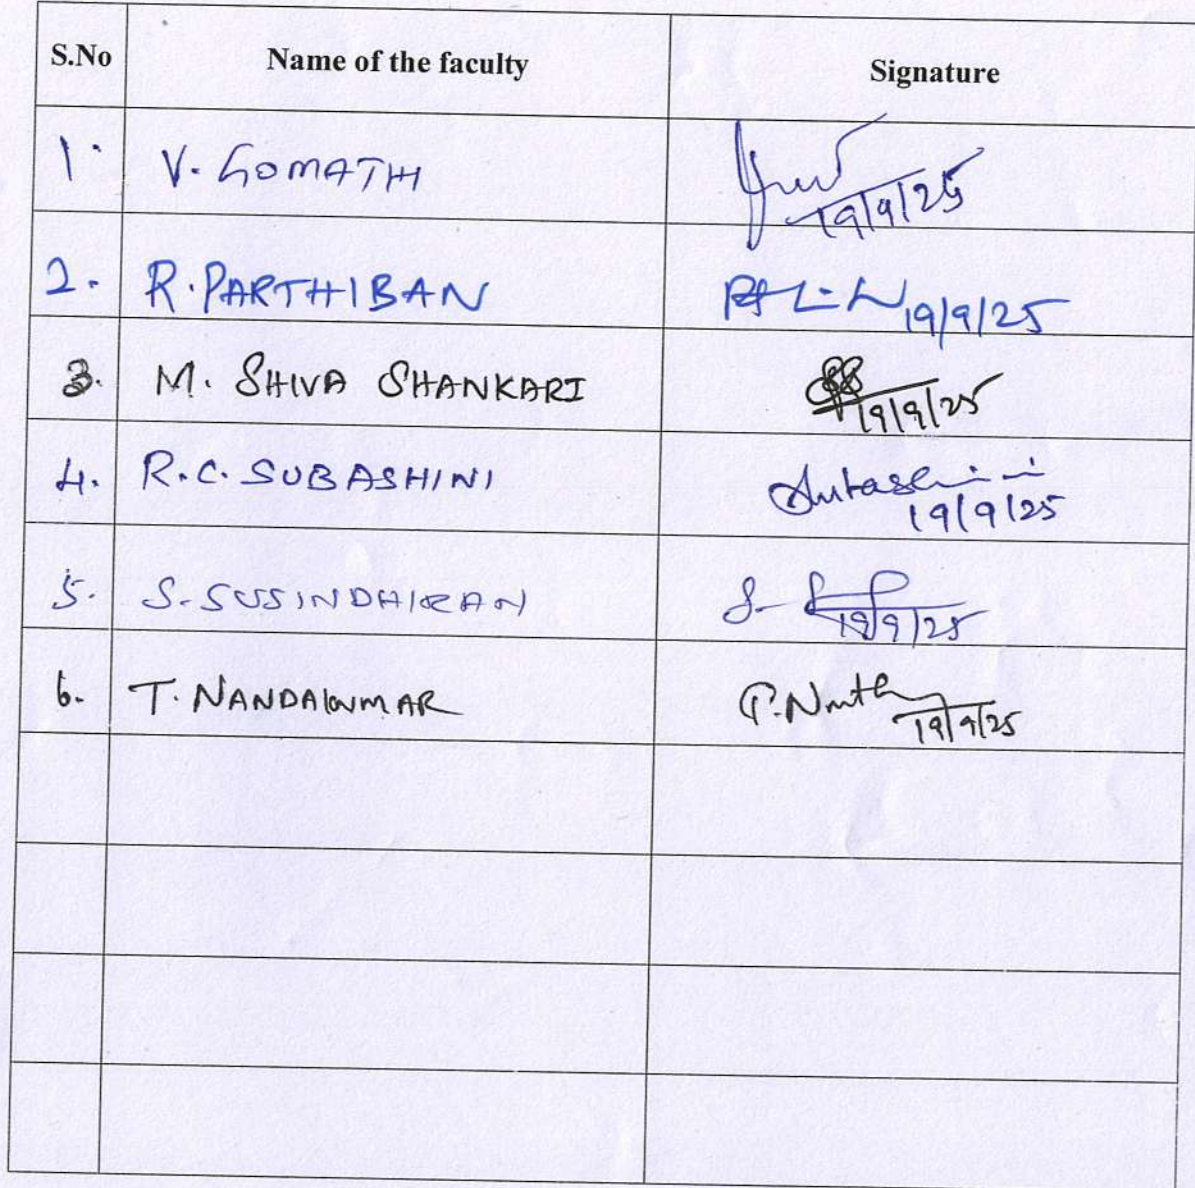 S.No Name of the faculty Signature
1. V. GOMATHI 19/9/25
2. R. PARTHIBAN 19/9/25
3. M. SHIVA SHANKARI 19/9/25
4. R.C. SUBASHINI 19/9/25
5. S. SUSINDHIRAN 19/9/25
6. T. NANDAKUMAR 19/9/25